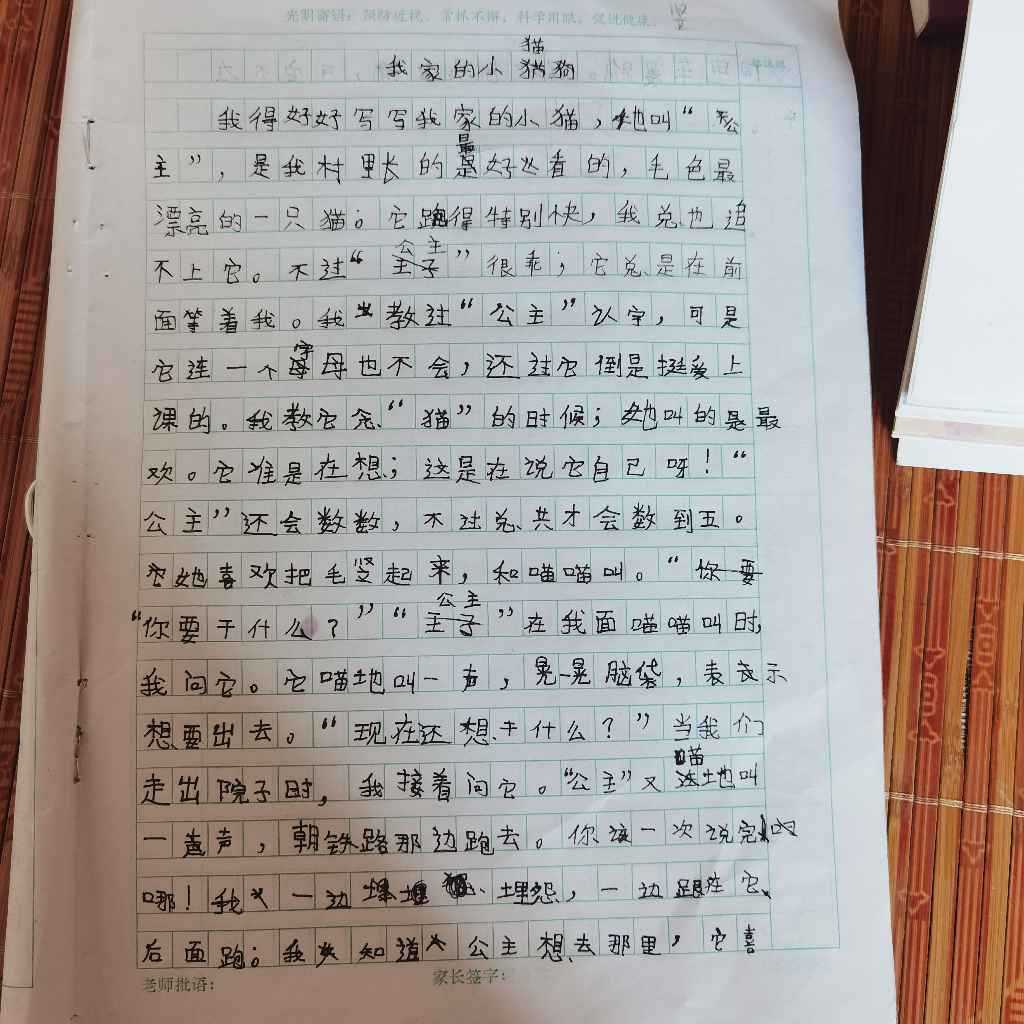 光明寄语：预防近视，常抓不懈，科学用眼，促进健康。
猫
我家的小狗
我得好好写写我家的小猫，她叫“公
最
主”，是我村里长的是好看的，毛色最
漂亮的一只猫。它跑得特别快，我总也追
公主
不上它。不过“王子”很乖；它总是在前
面等着我。我教过“公主”认字，可是
字
它连一个母也不会，还过它倒是挺爱上
课的。我教它念“猫”的时候；她叫的是最
欢。它准是在想；这是在说它自己呀！“
公主”还会数数，不过总共才会数到五。
她喜欢把毛竖起来，和喵喵叫。“你要
公主
“你要干什么？”“王子”在我面喵喵叫时，
我问它。它喵地叫一声，晃一晃脑袋，表示
想要出去。“现在还想干什么？”当我们
喵
走出院子时，我接着问它。“公主”又地叫
一声，朝铁路那边跑去。你该一次说完的
哪！我一边埋怨，一边跟在它
后面跑；我知道公主想去那里，它喜
老师批语：
家长签字：